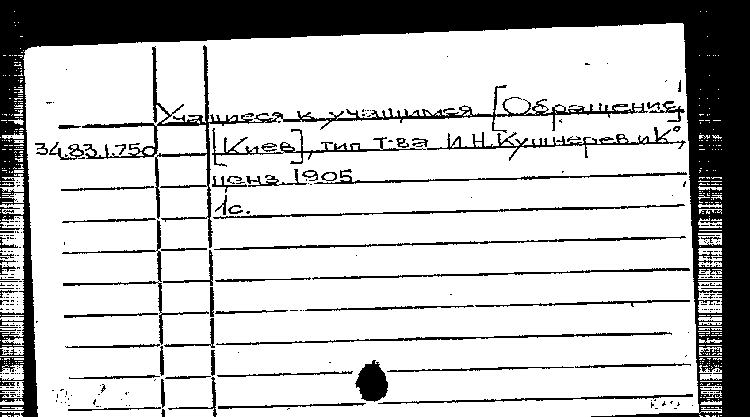 Учащиеся к учащимся [Обращение]
34.83.1.750 [Киев], тип. т-ва И.Н.Кушнерев и К°,
ценз. 1905.
1с.